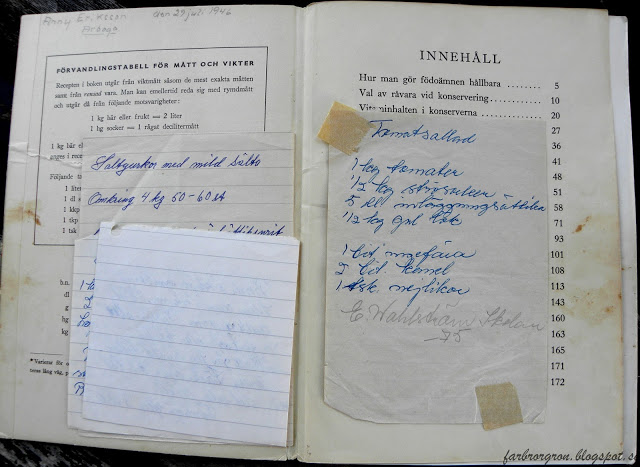 Anny Eriksson den 29 juli 1946
FÖRVANDLINGSTABELL FÖR MÅTT OCH VIKTER
Recepten i boken utgår från viktmått såsom de mest exakta måtten
samt från rensad vara. Man kan emellertid reda sig med rymdmått
och utgår då från följande motsvarigheter:
1 kg bär eller frukt = 2 liter
1 hg socker = 1 rågat decilitermått
1 kg bär el
anges i recep
Följande ta
1 liter
1 dl
1 kkp
1 tkp
1 tsk
Saltgurkor med mild sälta
Omkring 4 kg 50-60 st
b.n.
dl
g
hg
kg
* Varierar för o
INNEHÅLL
Hur man gör födoämnen hållbara 5
Val av råvara vid konservering 10
Vitaminhalten i konserverna 20
27
36
41
48
51
58
71
93
101
108
113
143
160
163
165
171
172
Tomatsallad
1 kg tomater
1/2 kg strösocker
5 dl inläggningsättika
1/2 kg gul lök
1 bit ingefära
2 bit kanel
1 tsk nejlikor
E. Wahlström Skolan
-75
farbrorgron.blogspot.se